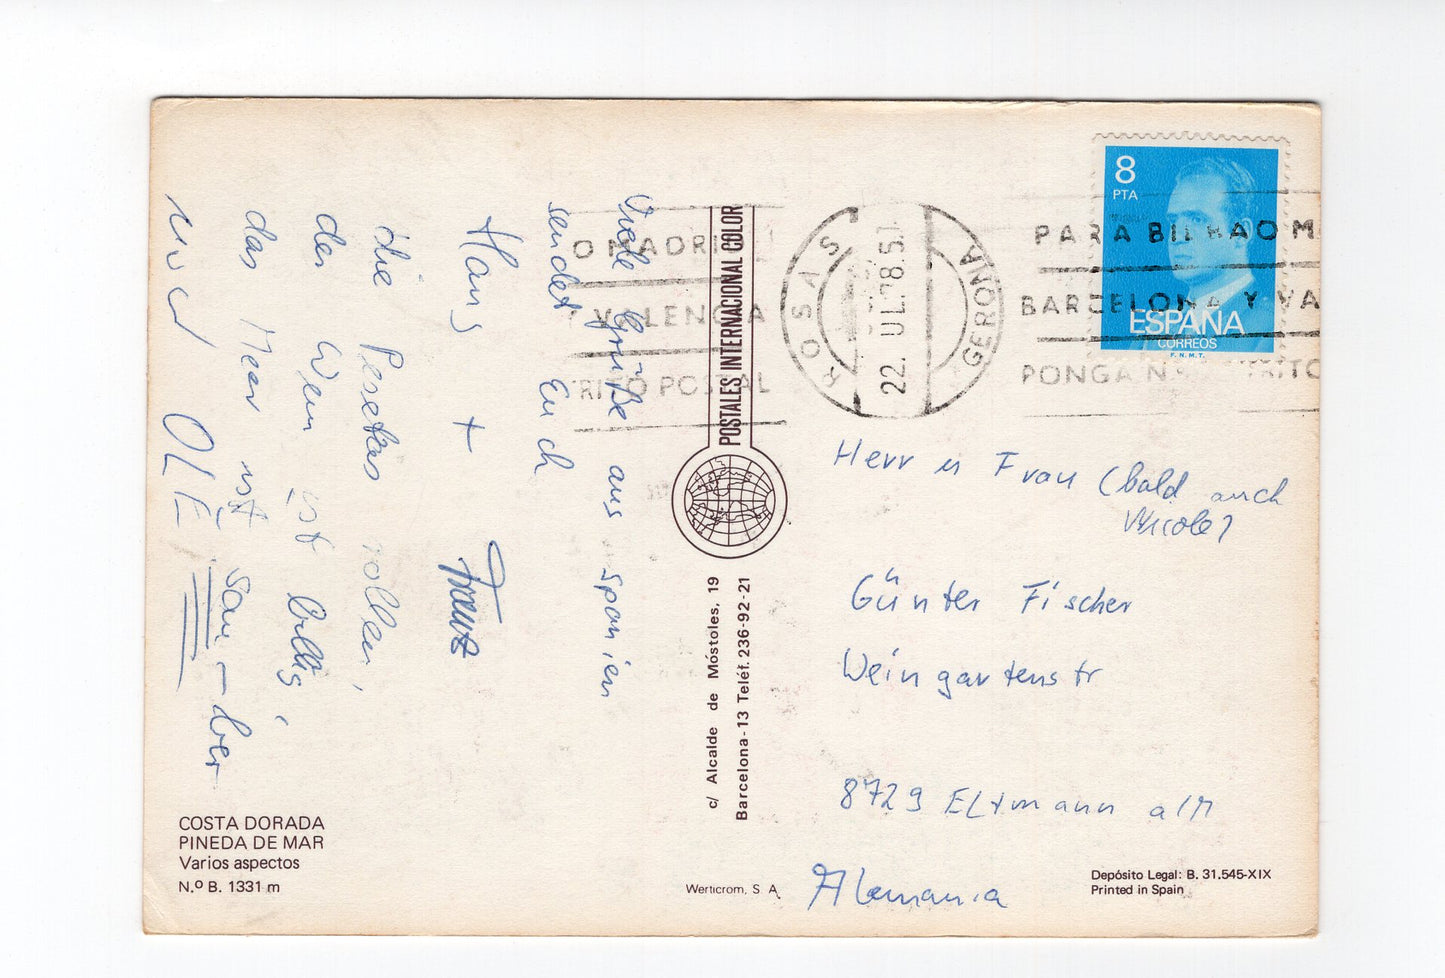 Viele Grüße aus Spanien
sendet Euch
Hans + Franz
die Peseten rollen,
der Wein ist billig,
das Meer ist sau-ber
und OLE
COSTA DORADA
PINEDA DE MAR
Varios aspectos
N.º B. 1331 m
POSTALES INTERNACIONAL COLOR
c/ Alcalde de Móstoles, 19
Barcelona-13 Teléf. 236-92-21
Werticrom, S. A.
O MADRI
Y VALENCIA
TRITO POSTAL
ROSAS
22. JUL. 78.5.
GERONA
PARA BILBAO M
BARCELONA Y VA
PONGA N TRITO
8
PTA
ESPAÑA
CORREOS
F.N.M.T.
Herr u Frau (bald auch
Nicole)
Günter Fischer
Weingartenstr
8729 Eltmann a/M
Alemania
Depósito Legal: B. 31.545-XIX
Printed in Spain